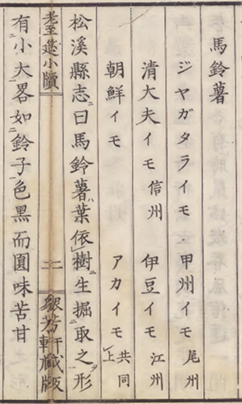 馬鈴薯
ジヤガタライモ 甲州イモ 尾州
清大夫イモ 信州 伊豆イモ 江州
朝鮮イモ アカイモ 共同上
松溪縣志曰馬鈴薯葉依樹生掘取之形
耋筵小牘 二 衆芳軒藏版
有小大畧如鈴子色黒而圓味苦甘